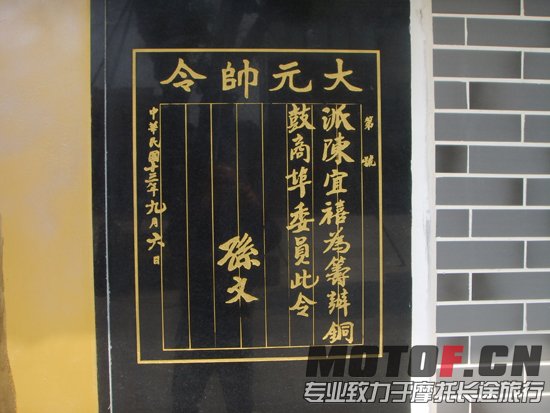 大元帥令
第 號
派陳宜禧為籌辦銅
鼓商埠委員此令
孫文
中華民國十三年九月六日
MOTOF.CN
专业致力于摩托长途旅行